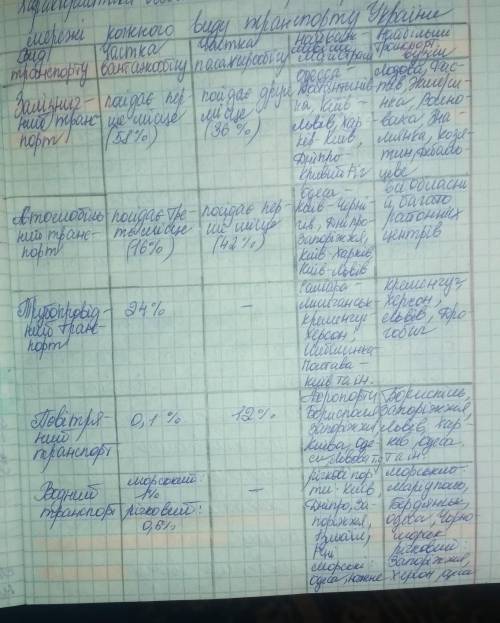 мережі кожного виду транспорту України
Вид
транспорту
частка
вантажообігу
частка
пасажирообігу
Найваж-
магістралі
Найбільші
транспорт.
вузли
Залізнич-
ний тран-
порт
посідає пер-
ше місце
(58%)
посідає друге
місце
(36%)
Одеса-
ка, Київ-
Львів, Хар-
ків-Київ,
Дніпро-
Кривий Ріг
Лозова, Фас-
тів, Жмерин-
нка, Волно-
ваха, Зна-
м'янка, Козя-
тин, Дебаль-
цеве
Автомобіль-
ний транс-
порт
посідає тре-
тє місце
(16%)
посідає пер-
ше місце
(42%)
Одеса-
Київ-Черні-
гів, Дніпро-
Запоріжжя,
Київ-Харків,
Київ-Львів
всі обласні
й багато
районних
центрів
Трубопровід-
ний тран-
порт
24%
-
Самара-
Лисичанськ-
Кременчук-
Херсон;
Шебелинка-
Полтава-
Київ та ін.
Кременчуг,
Херсон,
Львів, Дро-
гобич
Повітря-
ний
транспорт
0,1%
12%
Аеропорти
Бориспіль,
Запоріжжя,
Львів, Хар-
ків, Одеса
та ін.
Водний
транспорт
морський:
1%
річковий:
0,6%
-
річкові пор-
ти: Київ,
Дніпро, За-
поріжжя,
Ізмаїл,
Рені
морські:
Одеса, Южне
морський-
Маріуполь,
Бердянськ,
Одеса, Чорно-
морськ
річковий:
Запоріжжя,
Херсон, Одеса